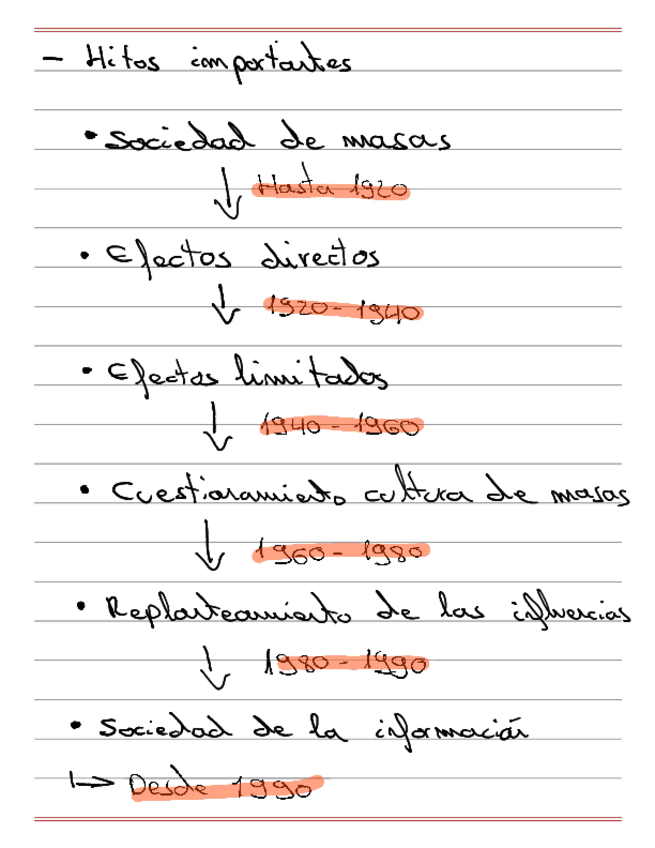 - Hitos importantes
• Sociedad de masas
↓ Hasta 1920
• Efectos directos
↓ 1920 - 1940
• Efectos limitados
↓ 1940 - 1960
• Cuestionamiento cultura de masas
↓ 1960 - 1980
• Replanteamiento de las influencias
↓ 1980 - 1990
• Sociedad de la información
↳ Desde 1990